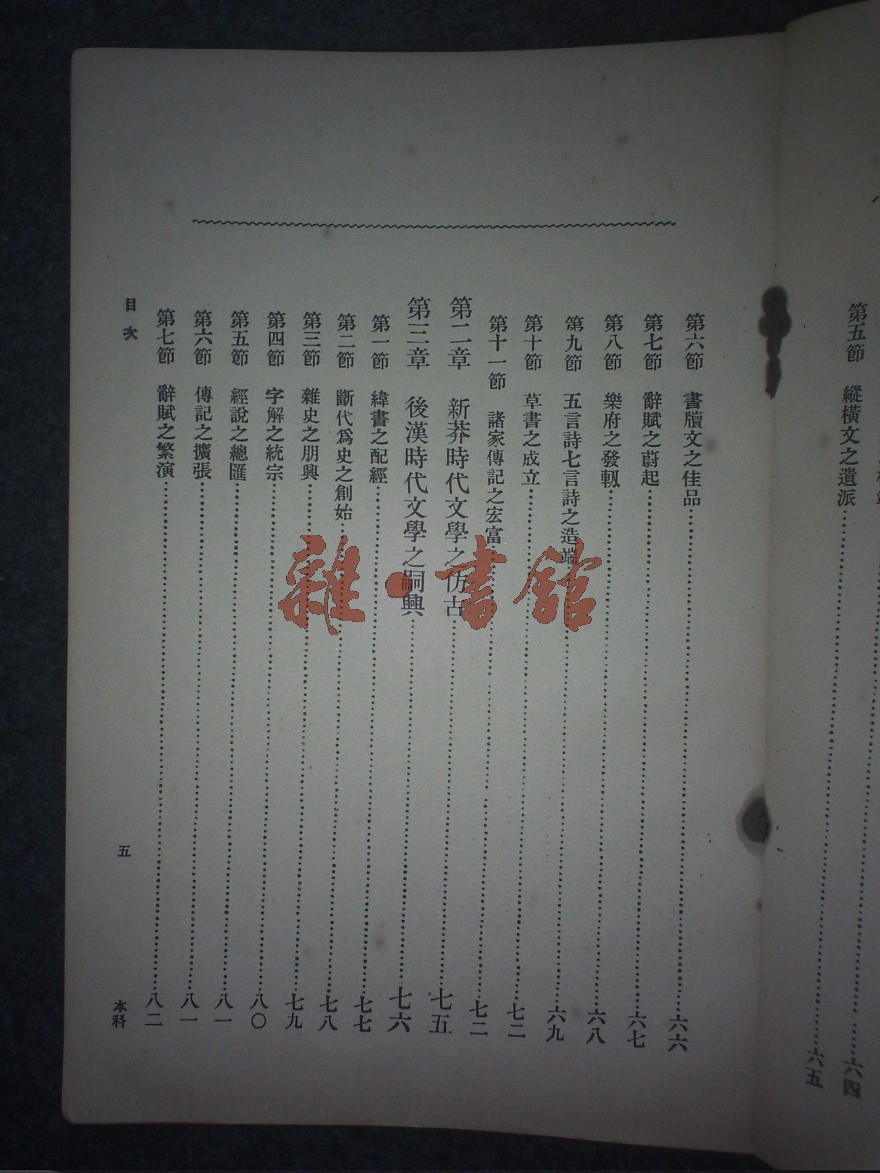 第五節　縱橫文之遺派……六四
六五
第六節　書牘文之佳品……六六
第七節　辭賦之蔚起……六七
第八節　樂府之發軔……六八
第九節　五言詩七言詩之造端……六九
第十節　草書之成立……七二
第十一節　諸家傳記之宏富……七二
第二章　新莽時代文學之仿古……七五
第三章　後漢時代文學之嗣興……七六
第一節　緯書之配經……七七
第二節　斷代爲史之創始……七八
第三節　雜史之朋興……七九
第四節　字解之統宗……八〇
第五節　經說之總匯……八一
第六節　傳記之擴張……八一
第七節　辭賦之繁演……八二
目次
五
本科
雜·書館